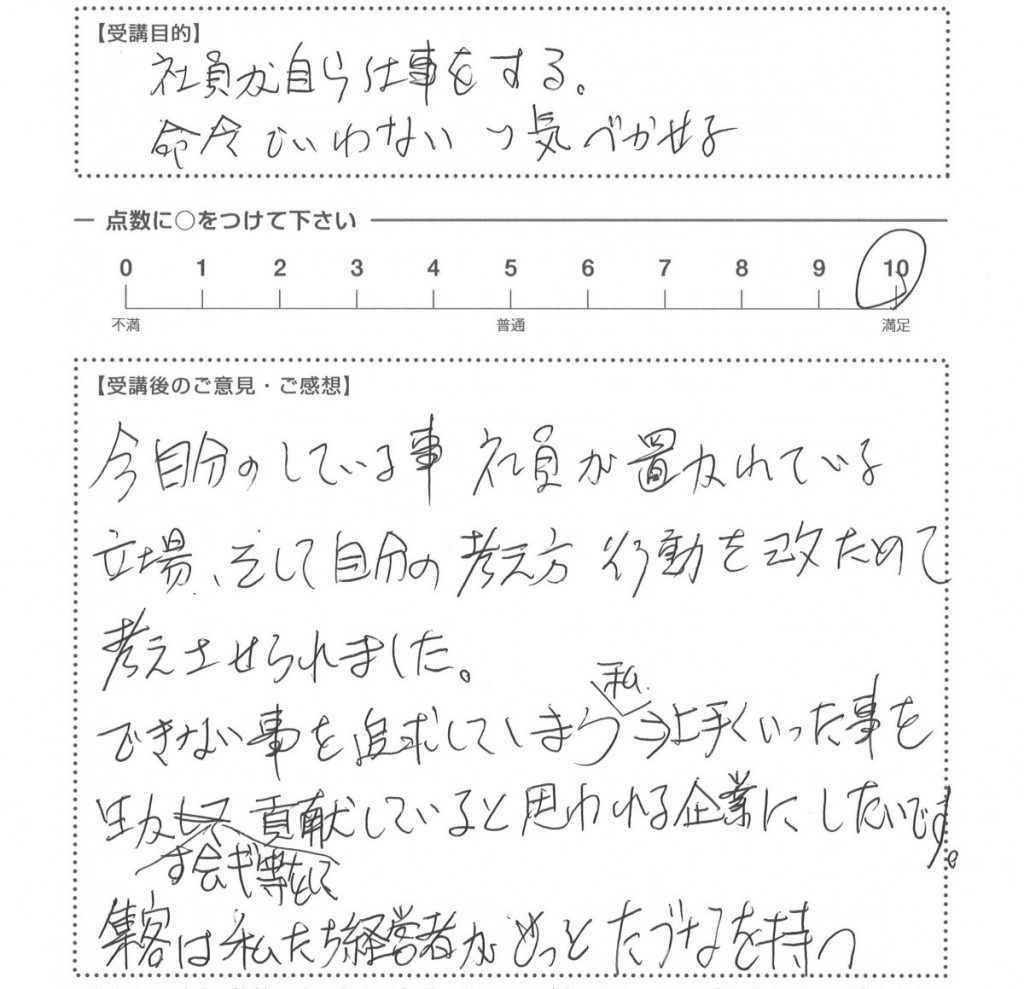 【受講目的】
社員が自ら仕事をする。
命令ひいわない つ気べかせる
点数に○をつけて下さい
0 1 2 3 4 5 6 7 8 9 10
不満 普通 満足
【受講後のご意見・ご感想】
今自分のしている事 社員が置かれている
立場、そして自分の考え方 行動を改ためて
考えさせられました。
私
できない事を追求してしまう⇒上手くいった事を
生かして 貢献していると思われる企業にしたいです。
す会ぎ等をして
集客は私たち経営者が たづなを持つ